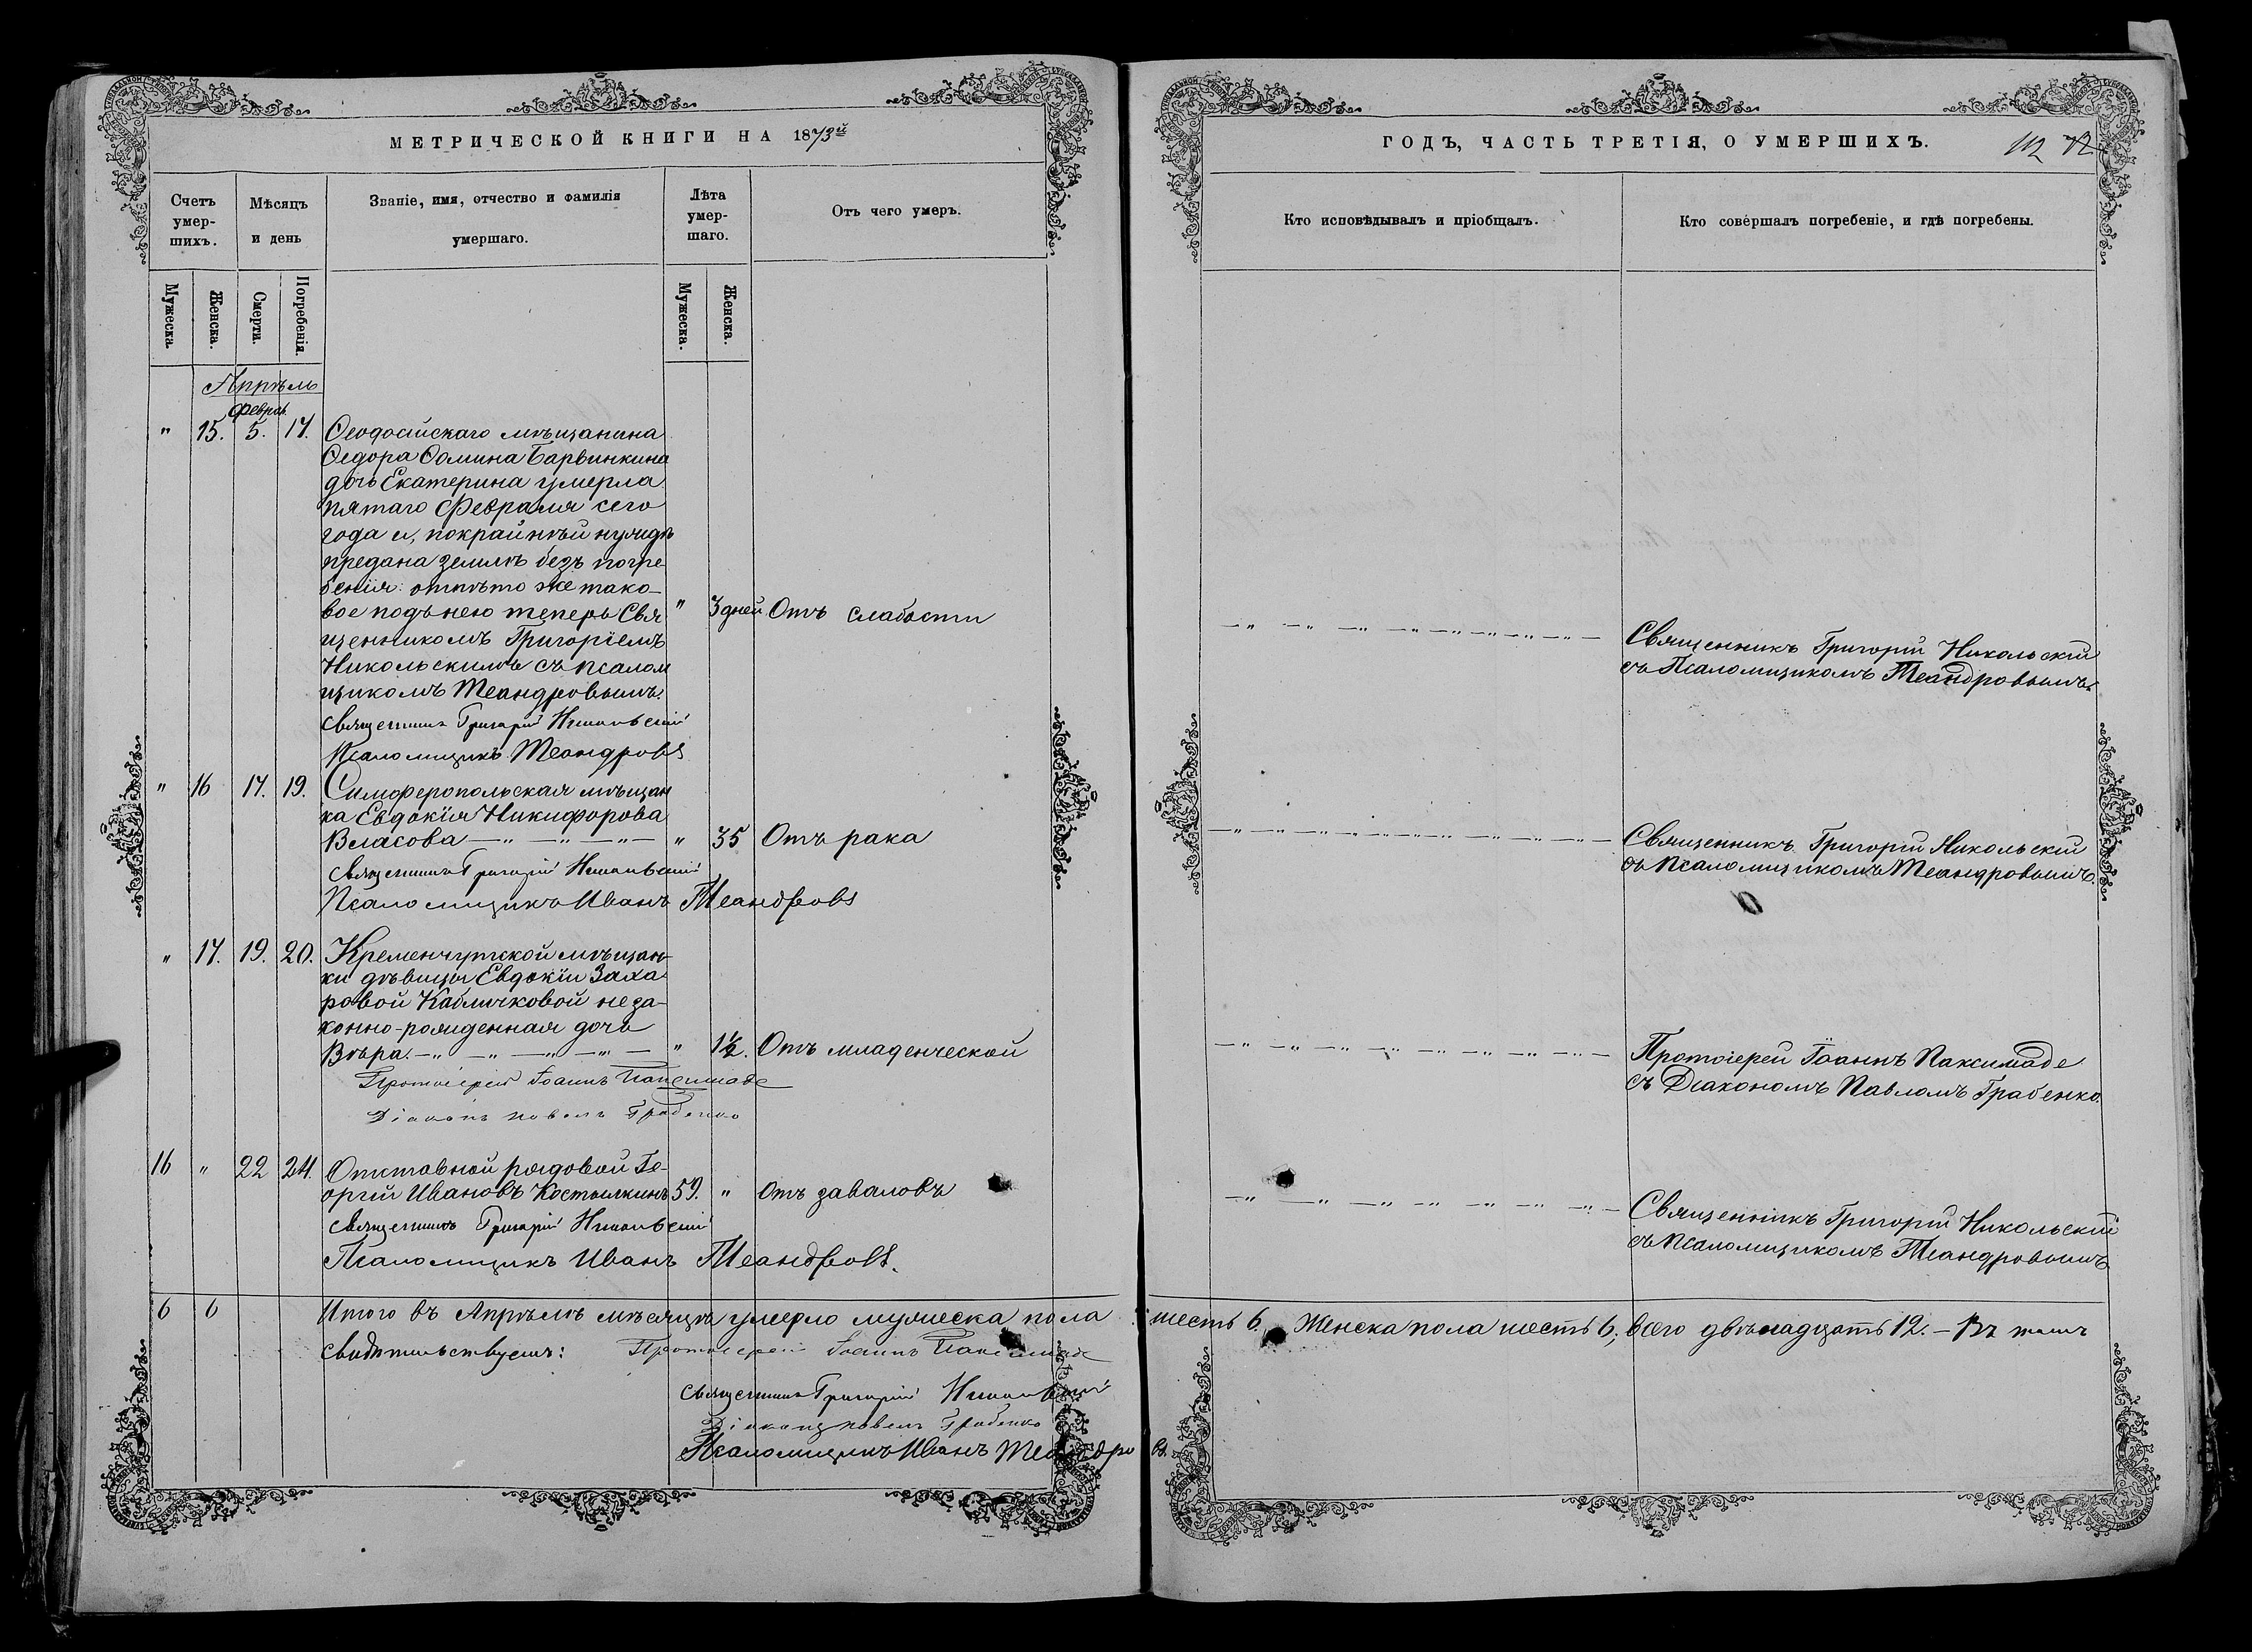 МЕТРИЧЕСКОЙ КНИГИ НА 1873й
Счетъ умер-шихъ.
Мѣсяцъ и день
Званіе, имя, отчество и фамилія умершаго.
Лѣта умер-шаго.
Отъ чего умеръ.
Мужеска.
Женска.
Смерти.
Погребенія.
Мужеска.
Женска.
Апрѣль
Февра.
" 15. 5. 17. Ѳеодосійскаго мѣщанина
Ѳедора Ѳомина Барвинкина
дочь Екатерина умерла
пятаго Февраля сего
года и, по крайнѣй нуждѣ
предана землѣ безъ погре
бенія: отпѣто же тако-
вое подъ нею теперь Свя " 3 дней Отъ слабости
щенникомъ Григоріемъ
Никольскимъ съ псалом
щикомъ Теандровымъ.
Священникъ Григорій Никольскій
Псаломщикъ Теандровъ
" 16 17. 19. Симферопольская мѣщан
ка Евдокія Никифорова
Власова " 35 Отъ рака
Священникъ Григорій Никольскій
Псаломщикъ Иванъ Теандровъ
" 17. 19. 20. Кременчугской мѣщан-
ки дѣвицы Евдокіи Заха
ровой Кабличковой неза-
конно-рожденная дочь
Вѣра. " 1½. Отъ младенческой
Протоіерей Іоаннъ Паксимаде
Діаконъ Павелъ Грабенко
16 " 22 24. Отставной рядовой Ге-
оргій Ивановъ Костылкинъ 59. " Отъ заваловъ
Священникъ Григорій Никольскій
Псаломщикъ Иванъ Теандровъ.
6 6 Итого въ Апрѣлѣ мѣсяцѣ умерло мужеска пола
Свидѣтельствуемъ: Протоіерей Іоаннъ Паксимаде
Священникъ Григорій Никольскій
Діаконъ Павелъ Грабенко
Псаломщикъ Иванъ Теандровъ.
ГОДЪ, ЧАСТЬ ТРЕТІЯ, О УМЕРШИХЪ.
Кто исповѣдывалъ и пріобщалъ.
Кто совершалъ погребеніе, и гдѣ погребены.
Священникъ Григорій Никольскій
съ Псаломщикомъ Теандровымъ.
Священникъ Григорій Никольскій
съ Псаломщикомъ Теандровымъ.
Протоіерей Іоаннъ Паксимаде
съ Діакономъ Павломъ Грабенко.
Священникъ Григорій Никольскій
съ Псаломщикомъ Теандровымъ
шесть 6. Женска пола шесть 6; всего двѣнадцать 12. – Въ томъ